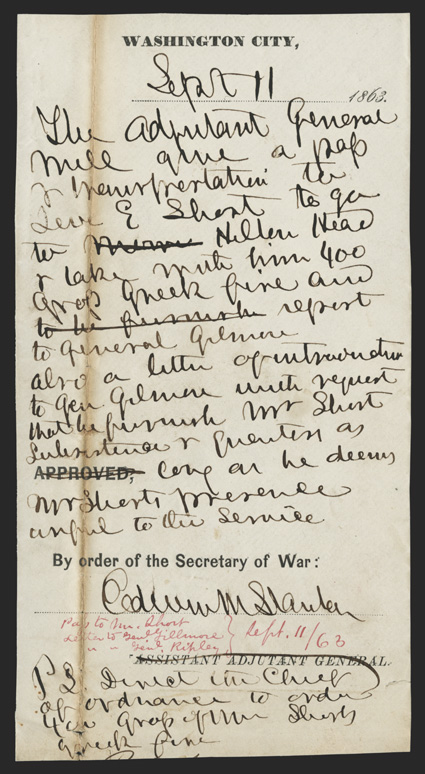 WASHINGTON CITY,
Sept 11 1863.
The Adjutant General
will give a pass
& transportation to
Levi E Short to go
to Hilton Head
& take with him 400
Gross Greek fire and
to be furnish report
to General Gilmore
also a letter of introduction
to Gen Gilmore with request
that he furnish Mr Short
Subsistence & Quarters as
APPROVED; long as he deems
Mr Shorts presence
useful to the Service
By order of the Secretary of War:
Edwin M Stanton
Pass to Mr. Short
Letter to Genl Gillmore
" " Genl Ripley
Sept. 11/63
ASSISTANT ADJUTANT GENERAL.
P S. Direct the Chief
of ordnance to order
400 Gross of Mr Shorts
Greek fire